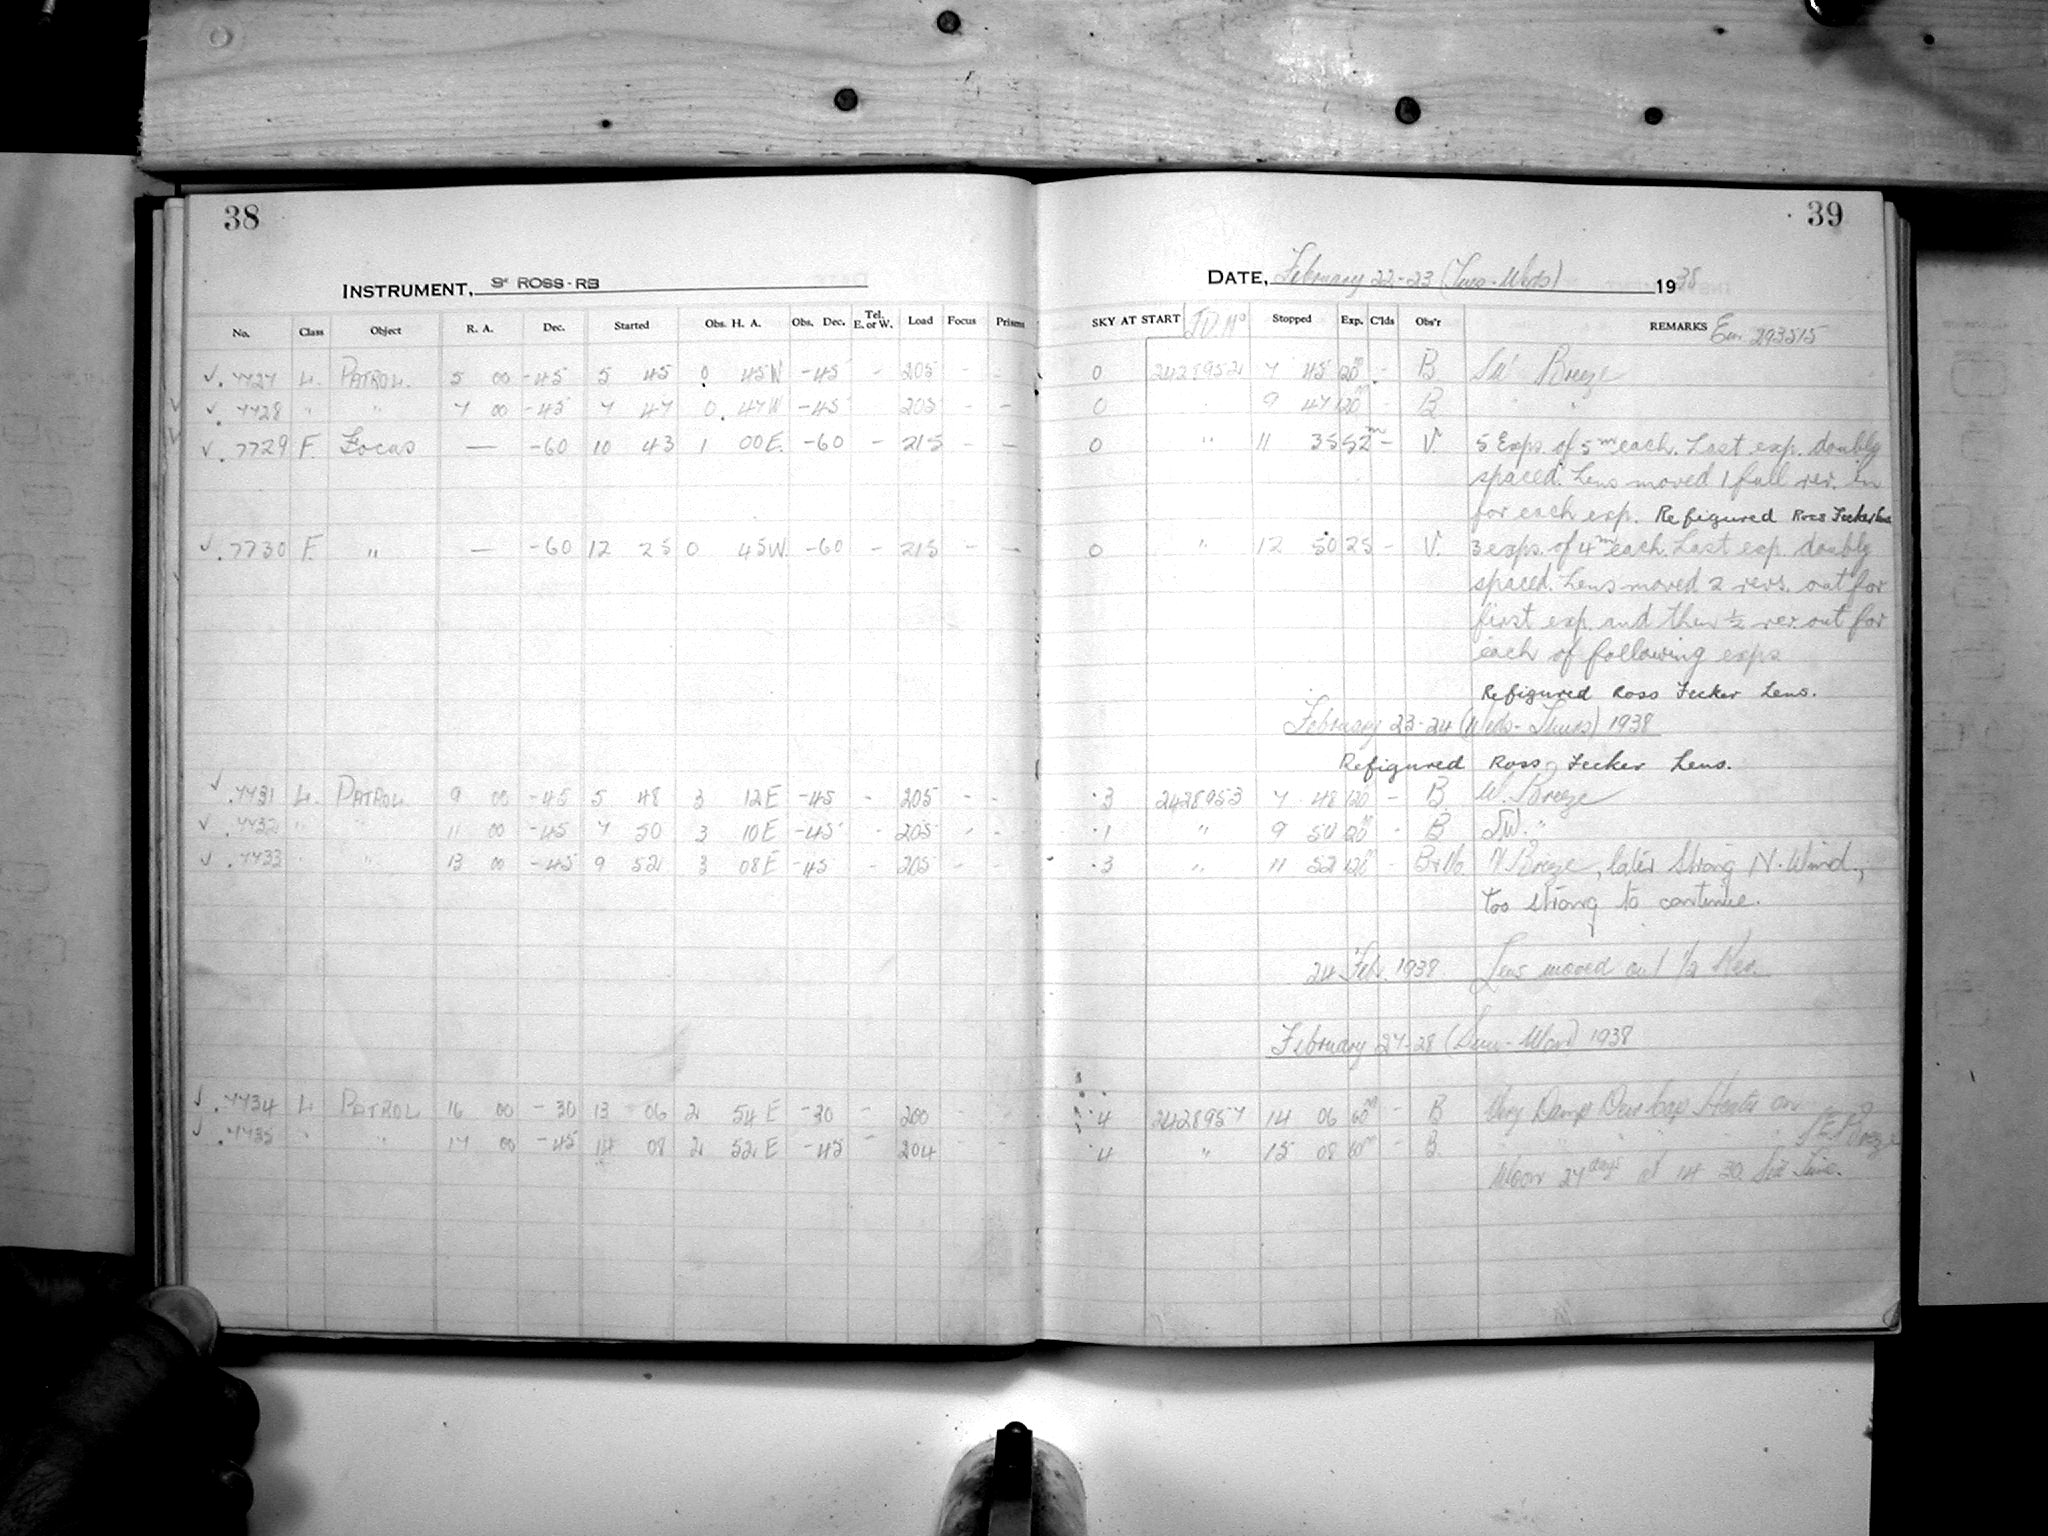 38
INSTRUMENT, 3" ROSS-RB
No. Class Object R. A. Dec. Started Obs. H. A. Obs. Dec. Tel. E. or W. Load Focus Prisms
✓ . 7727 L. PATROL. 5 00 -45 5 45 0 45W -45 - 205 - -
✓ . 7728 " " 7 00 -45 7 47 0 47W -45 - 205 - -
✓ . 7729 F. Focus — -60 10 43 1 00E. -60 - 215 - —
✓ . 7730 F. " — -60 12 25 0 45W. -60 - 215 - —
✓ . 7731 L. PATROL 9 00 -45 5 48 3 12E -45 - 205 - -
✓ . 7732 " " 11 00 -45 7 50 3 10E -45 - 205 - -
✓ . 7733 " " 13 00 -45 9 52 3 08E -45 - 205 - -
✓ . 7734 L. PATROL 16 00 -30 13 06 2 54E -30 - 200 - -
✓ . 7735 " " 17 00 -45 14 08 2 52E -45 - 204 - -
39
DATE, February 22-23 (Tues-Weds) 1938
SKY AT START J.D. No Stopped Exp. C'lds Obs'r REMARKS Em. 293515
0 2428952 7 45 120m - B Breeze
0 " 9 47 120m - B " "
0 " 11 35 52m - V. 5 Exps. of 5m each. Last exp. doubly
spaced. Lens moved 1 full rev. in
for each exp. Refigured Ross Fecker Lens
0 " 12 50 25 - V. 3 exps. of 4m each. Last exp. doubly
spaced. Lens moved 2 revs. out for
first exp. and then ½ rev. out for
each of following exps
Refigured Ross Fecker Lens.
February 23-24 (Weds-Thurs) 1938
Refigured Ross Fecker Lens.
·3 2428953 7 48 120 - B. W. Breeze
·1 " 9 50 120m - B "
·3 " 11 52 120m - N Breeze, later Strong N. Wind,
too strong to continue.
24 Feb. 1938 Lens moved out ½ Rev.
February 27-28 (Sun-Mon) 1938
·4 2428957 14 06 60m - B Very Damp Dew cap Heater on
·4 " 15 08 60m - B. " " " " " S.E. Breeze
Moon 27 days at 14 30 Sid Time.